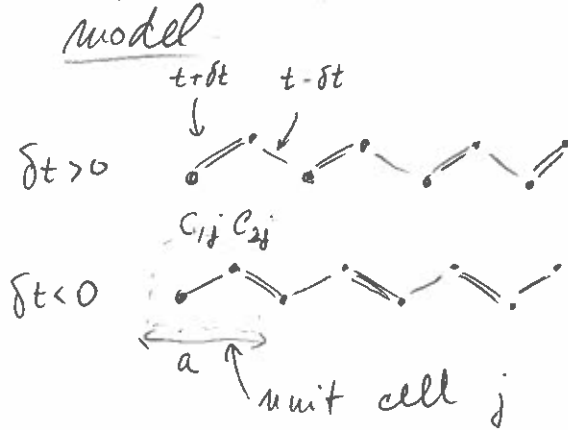 model
t+δt t-δt
δt>0
C₁ⱼ C₂ⱼ
δt<0
a
unit cell j